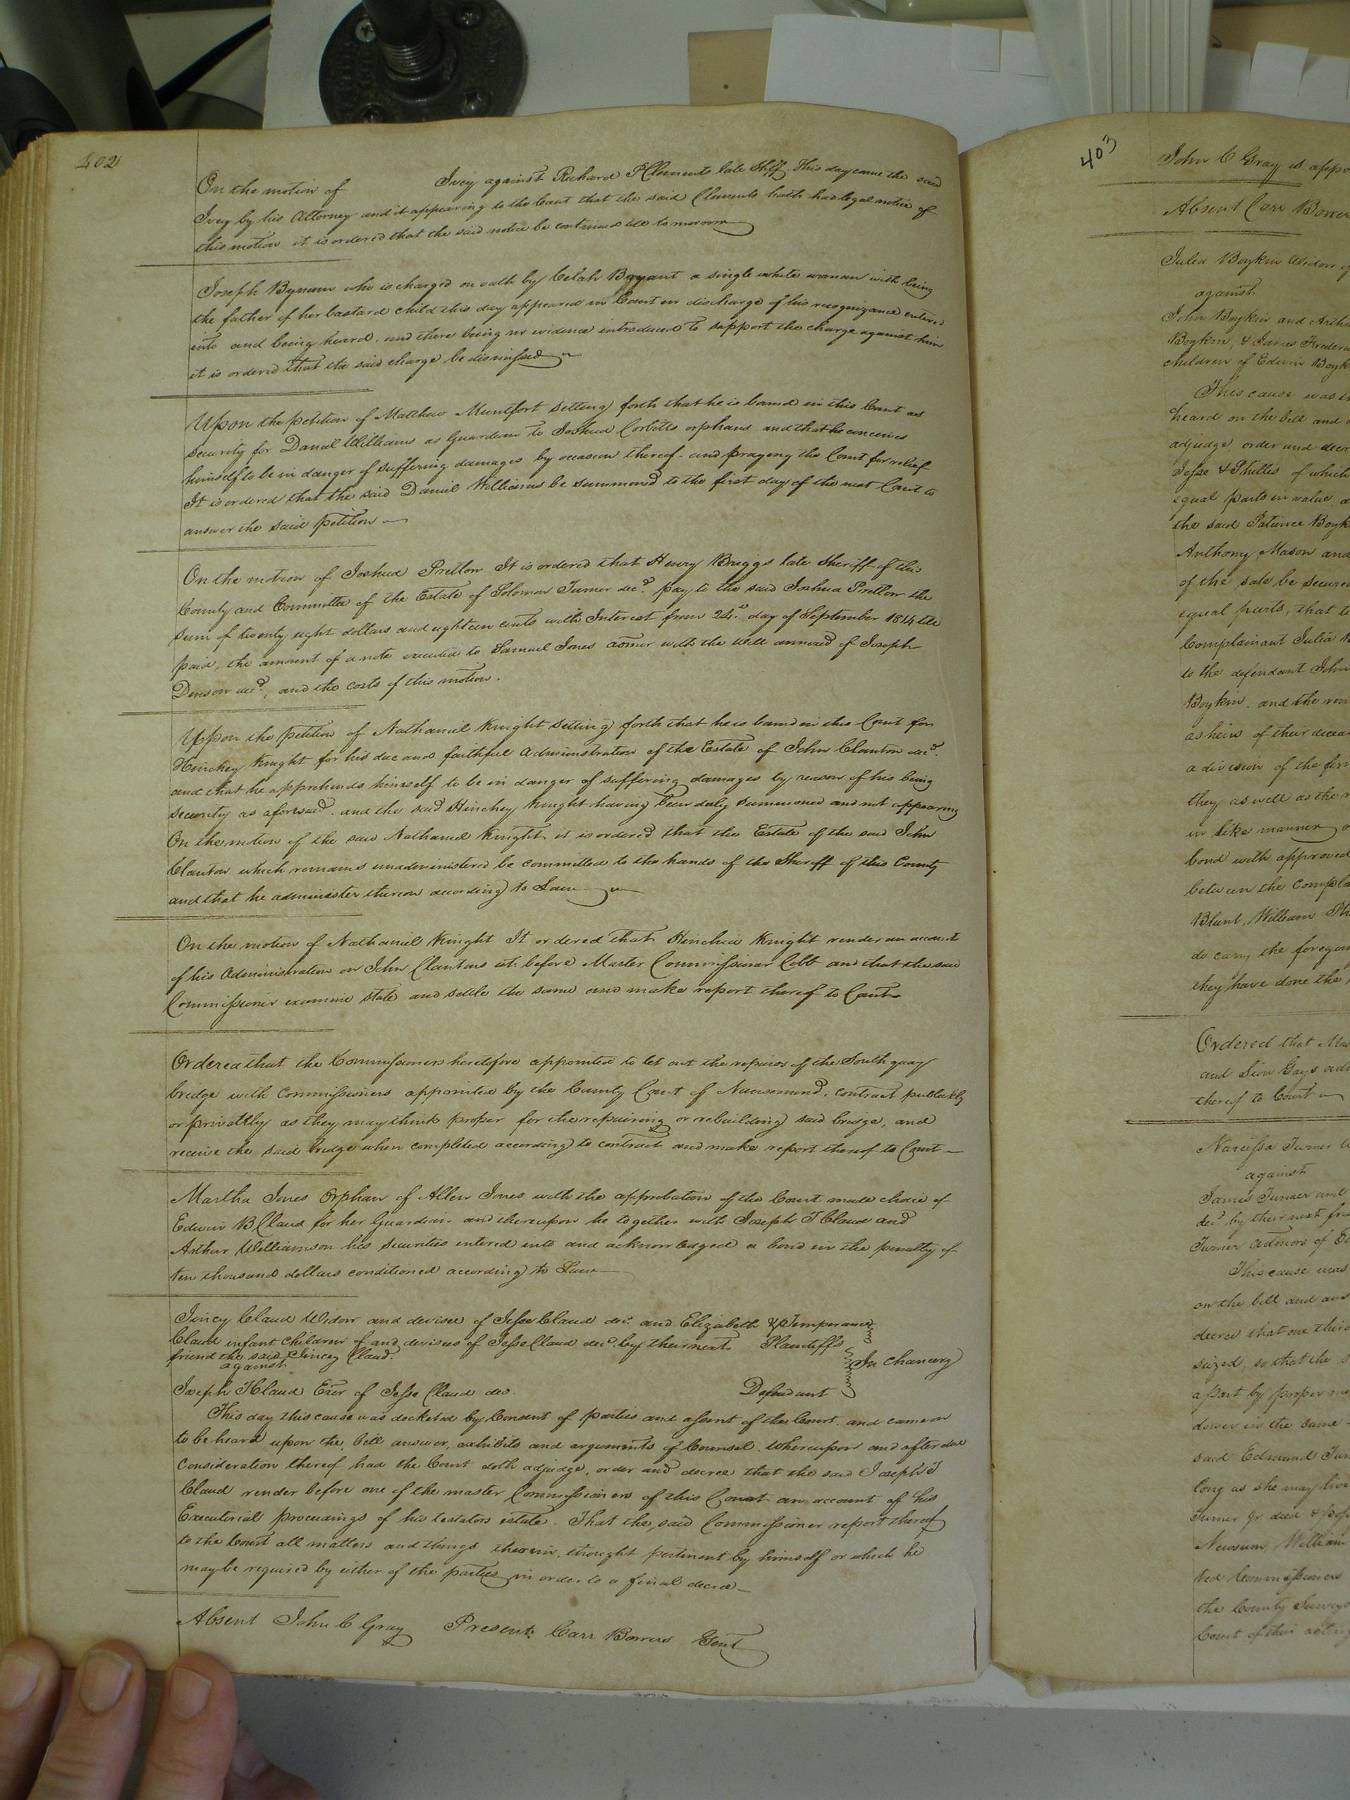 402
On the motion of Ivey against Richard P Clements late Shff This day came the said
Ivey by his Attorney and it appearing to the Court that the said Clements hath had legal notice of
this motion it is ordered that the said notice be continued til to morrow
Joseph Bynum who is charged on oath by Celah Bryant a single white woman with being
the father of her bastard child this day appeared in Court in discharge of his recognizance entered
into and being heard, and there being no evidence introduced to support the charge against him
it is ordered that the said charge be dismissed
Upon the petition of Matthew Muntfort setting forth that he is bound in this Court as
security for Daniel Williams as Guardian to Joshua Corbitts orphans and that he conceives
himself to be in danger of suffering damages by occasion thereof and praying the Court for relief
It is ordered that the said Daniel Williams be summoned to the first day of the next Court to
answer the said petition
On the motion of Joshua Pretlow It is ordered that Henry Briggs late Sheriff of this
County and Committee of the Estate of Solomon Turner decd. pay to the said Joshua Pretlow the
sum of twenty eight dollars and eighteen cents with Interest from 24th. day of September 1814 till
paid, the amount of a note executed to Samuel Jones admor with the will annexed of Joseph
Denson decd., and the costs of this motion.
Upon the petition of Nathaniel Knight setting forth that he is bound in this Court for
Hinchey Knight for his due and faithful Administration of the Estate of John Clanton decd
and that he apprehends himself to be in danger of suffering damages by reason of his being
security as aforesaid. and the said Hinchey Knight having been duly summoned and not appearing
On the motion of the said Nathaniel Knight it is ordered that the Estate of the said John
Clanton which remains unadministered be committed to the hands of the Sheriff of this County
and that he administer thereon according to Law
On the motion of Nathaniel Knight It ordered that Hinchia Knight render an account
of his Administration on John Clantons est. before Master Commissioner Cobb and that the said
Commissioner examine state and settle the same and make report thereof to Court
Ordered that the Commissioners heretofore appointed to let out the repairs of the South quay
bridge with Commissioners appointed by the County Court of Nansemond, contract publickly
or privattly as they may think proper for the repairing or rebuilding said bridge, and
receive the said bridge when completed according to contract and make report thereof to Court
Martha Jones Orphan of Allen Jones with the approbation of the Court made choice of
Edwin B Claud for her Guardian and thereupon he together with Joseph T Claud and
Arthur Williamson his securities entered into and acknowledged a bond in the penalty of
ten thousand dollars conditioned according to Law
Jincy Claud Widow and devisee of Jesse Claud dec. and Elizabeth & Temperance
Claud infant children of and devisees of Jesse Claud decd. by their next Plaintiffs
friend the said Jincey Claud.
against In Chancery
Joseph T Claud Exer of Jesse Claud dec. Defendant
This day this cause was docketed by Consent of parties and assent of the Court. and came on
to be heard upon the bill answer, exhibits and arguments of Counsel. Whereupon and after due
consideration thereof had the Court doth adjudge, order and decree that the said Joseph T
Claud render before one of the master Commissioners of this Court an account of his
Executorial proceedings of his testators estate. That the said Commissioner report thereof
to the Court all matters and things therein, thought pertinent by himself or which he
may be required by either of the parties in order to a final decree
Absent John C Gray Present Carr Bowers Gent
403
John C Gray is appo
Absent Carr Bower
Julia Boykin Widow of
against
John Boykin and Artha
Boykin, & James Frederi
children of Edwin Boyk
This cause was th
heard on the bill and a
adjudge order and decre
Jesse & Phillis of which
equal parts in value a
the said Patience Boyk
Anthony Mason and
of the sale be secured
equal parts, that to
Complainant Julia B
to the defendant John
Boykin. and the rem
as heirs of their decea
a division of the fun
they as well as the r
in like manner o
bond with approved
between the compla
Blunt, William Ph
do carry the foregoi
they have done the
Ordered that Ma
and Sion Gays adm
thereof to Court
Narcissa Turner W
against
James Turner and
decd by their next frie
Turner admor of Ed
This cause was
on the bill and ans
decree that one third
seized, so that the s
apart by proper me
dower in the same
said Edmund Tur
long as she may live
Turner jr. decd & app
Newsum, William
ted Commissioners
the County Survey
Court of their acting